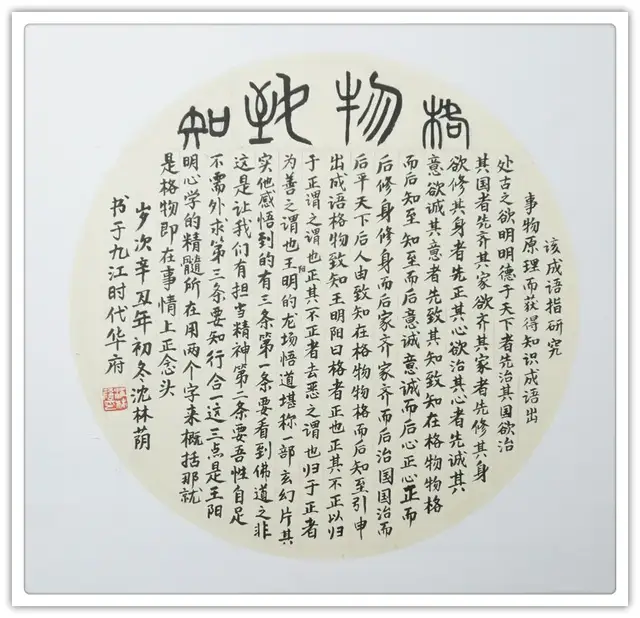 格物致知
该成语指研究
事物原理而获得知识成语出
处古之欲明明德于天下者先治其国欲治
其国者先齐其家欲齐其家者先修其身
欲修其身者先正其心欲治其心者先诚其
意欲诚其意者先致其知致知在格物物格
而后知至知至而后意诚意诚而后心正心正而
后修身修身而后家齐家齐而后治国国治而
后平天下后人由致知在格物物格而后知至引申
出成语格物致知王明阳曰格者正也正其不正以归
于正谓之谓也正其不正者去恶之谓也归于正者
为善之谓也王明阳的龙场悟道堪称一部玄幻片其
实他感悟到的有三条第一条要看到佛道之非
这是让我们有担当精神第二条要吾性自足
不需外求第三条要知行合一这三点是王阳
明心学的精髓所在用两个字来概括那就
是格物即在事情上正念头
岁次辛丑年初冬沈林荫
书于九江时代华府